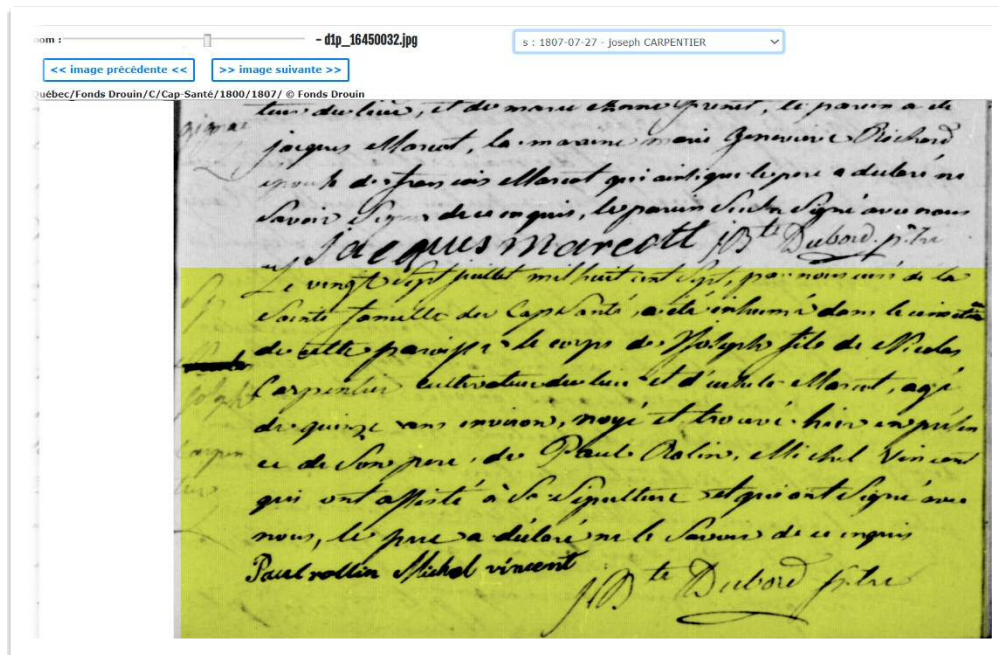 oom :
– d1p_16450032.jpg
s : 1807-07-27 - Joseph CARPENTIER
<< image précédente <<
>> image suivante >>
Québec/Fonds Drouin/C/Cap-Santé/1800/1807/ © Fonds Drouin
du lieu, et de marie Grenet, le parein a ete
jacques Marcot, la maraine marie Genevieve Richard
epouse de francois Marcot qui ainsi que le pere a declaré ne
Savoir Signer de ce enquis, le parein Signé avec nous
jacques marcott JBte Dubord ptre
Le vingt Sept juillet mil huit cent Sept, par nous curé de la
Sainte famille du Cap Santé, a été inhumé dans le cimetiere
de cette paroisse le corps de Joseph fils de Nicolas
Carpentier cultivateur du lieu et d'ursule Marcot, agé
de quinze ans environ, noyé et trouvé hier en présen
ce de Son pere, de Paul Rolin, Michel Vincent
qui ont assisté à Sa Sépulture et qui ont Signé avec
nous, le pere a déclaré ne le Savoir de ce enquis
Paul rollin Michel vincent
JBte Dubord ptre